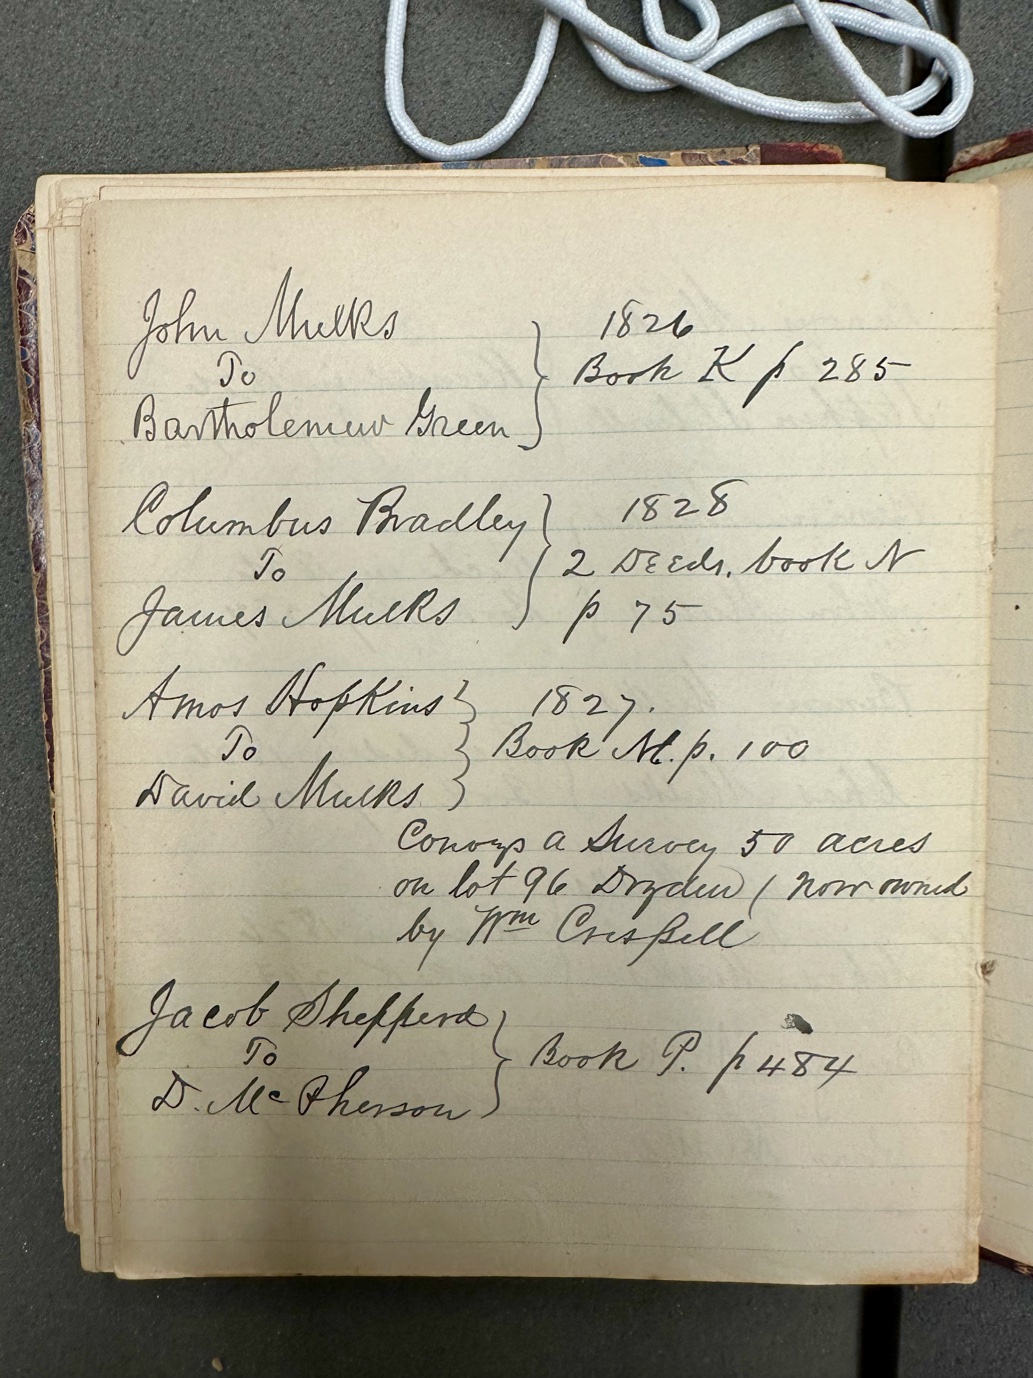 John Mulks } 1826
To Book K p 285
Bartholemew Green
Columbus Bradley } 1828
To 2 Deeds. book N
James Mulks p 75
Amos Hopkins } 1827.
To Book M. p. 100
David Mulks
Conveys a Survey 50 acres
on lot 96 Dryden ( now owned
by Wm Crispell
Jacob Shepperd }
To Book P. p 484
D. Mc Pherson